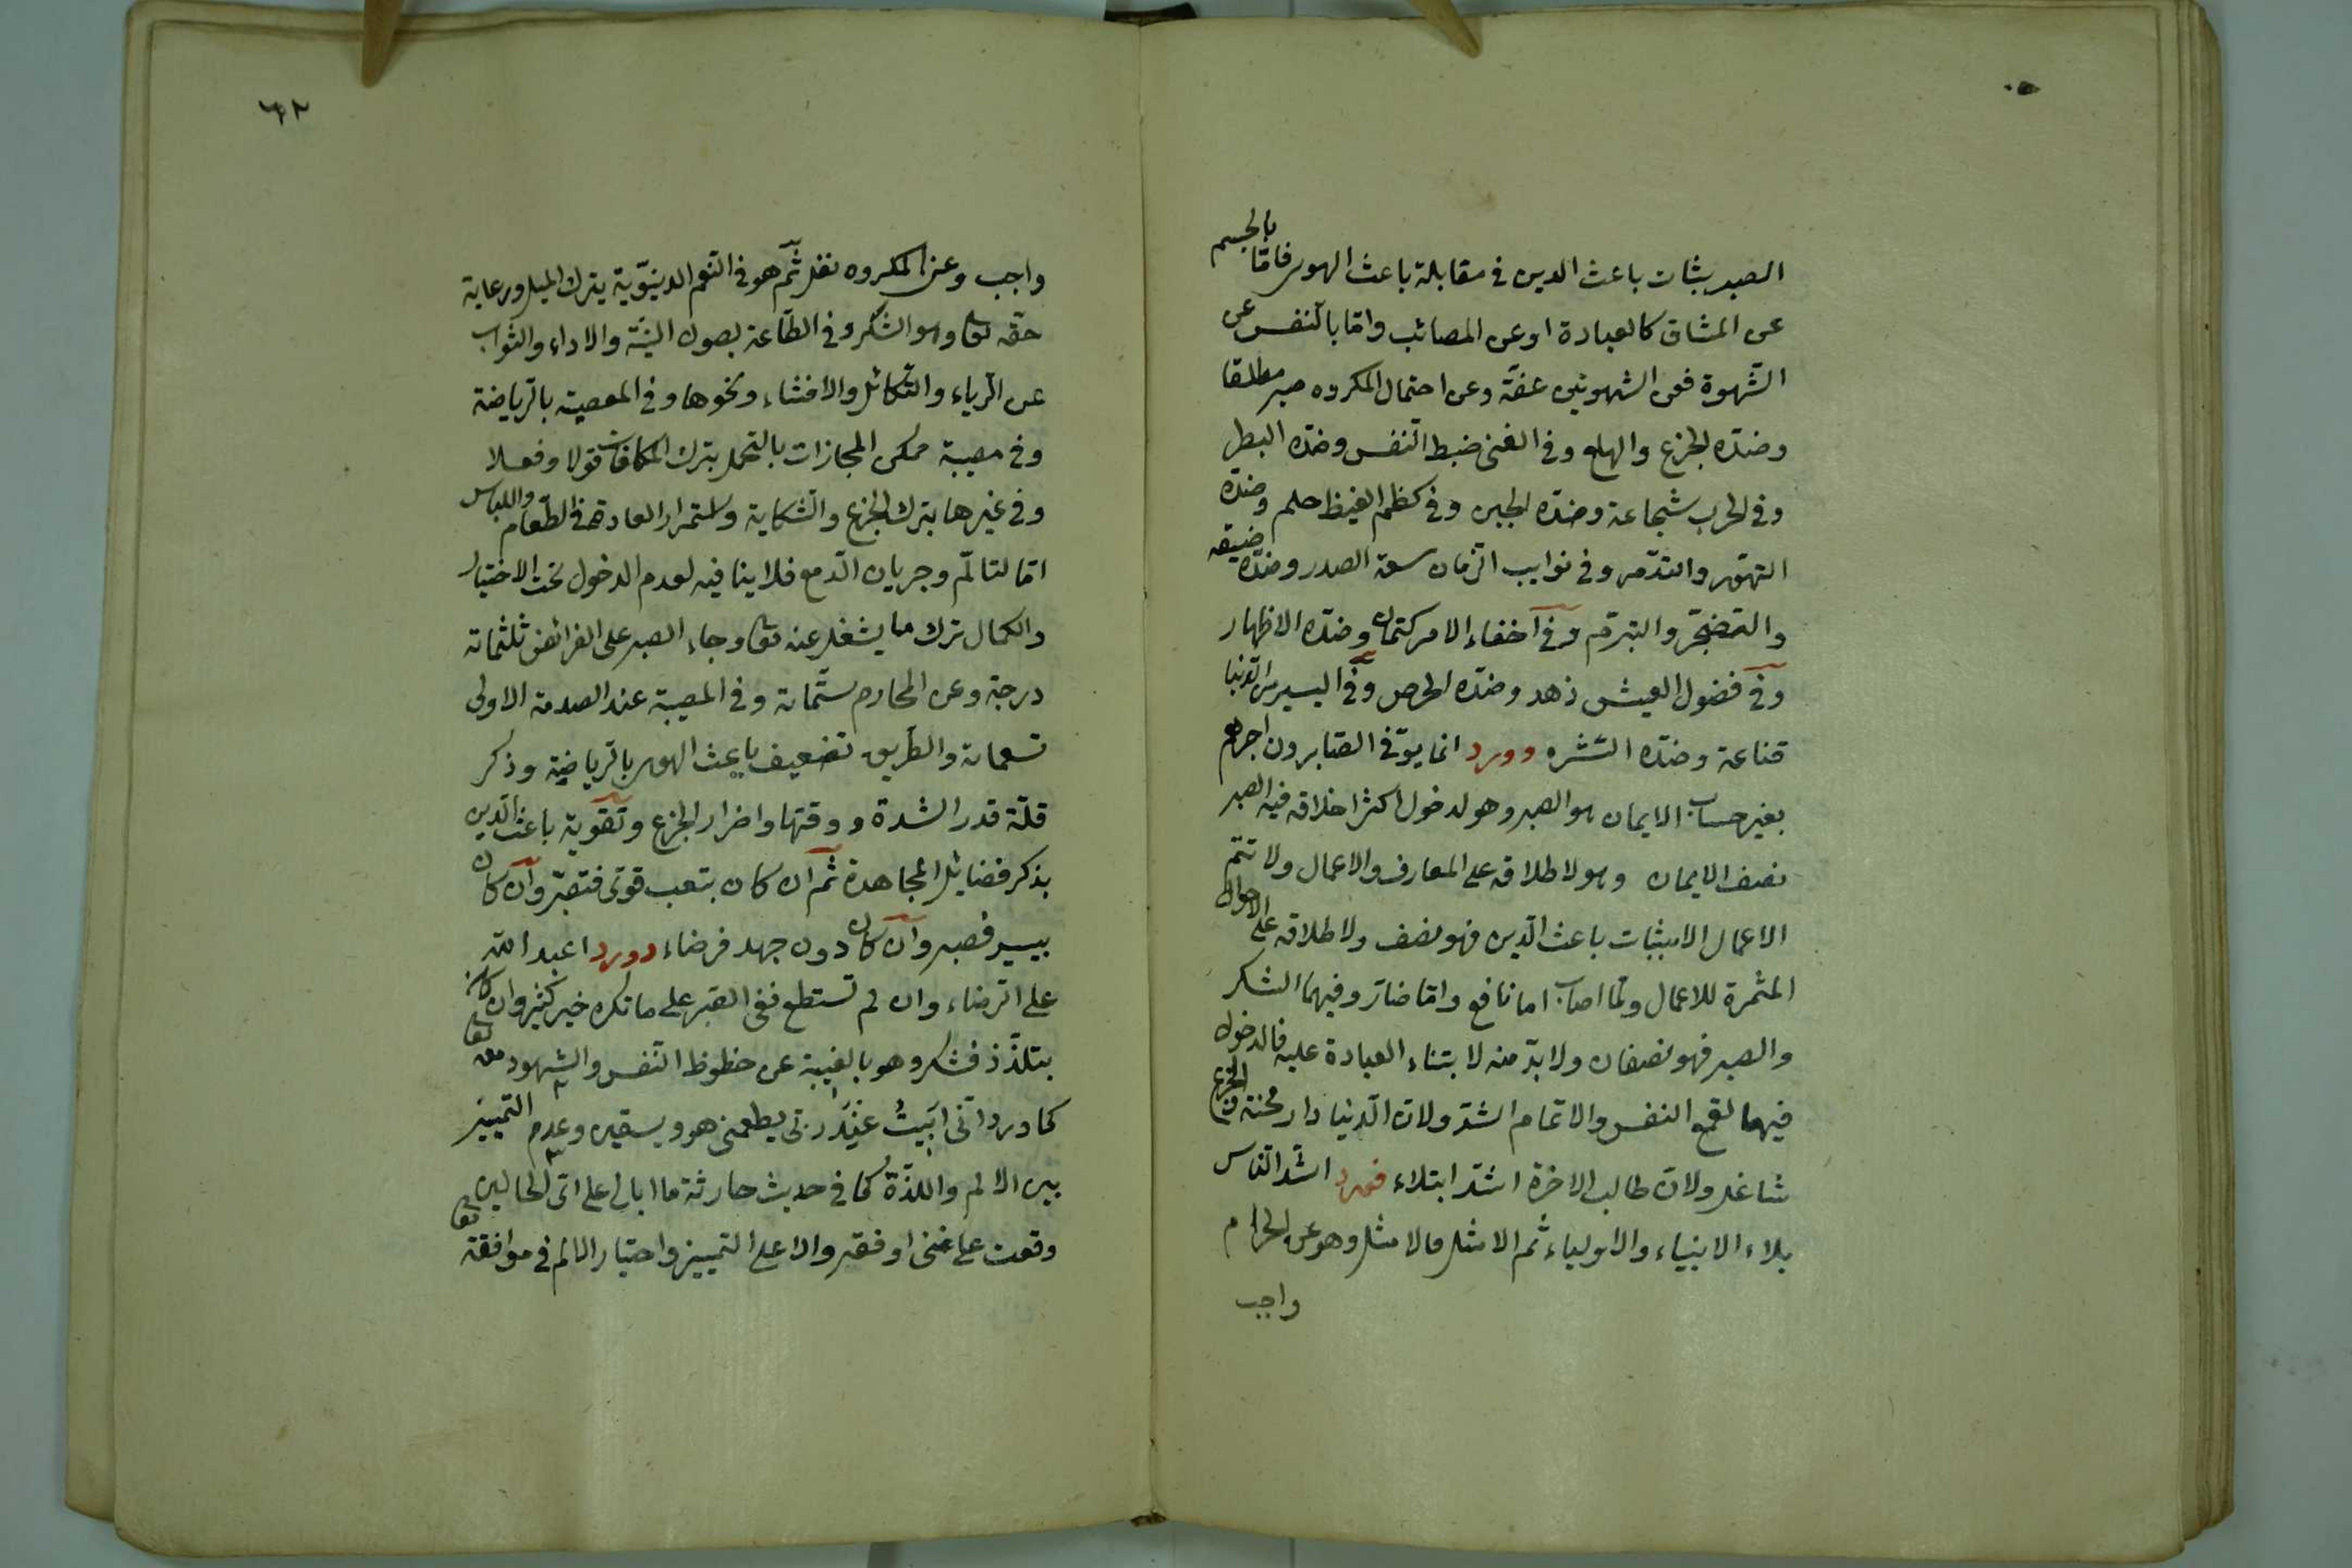 الصبر بثبات باعث الدين في مقابلة باعث الهوى فامّا بالجسم
عن المشاق كالعبادة او عن المصائب وامّا بالنفس عن
الشّهوة فعن الشهوتين عفّة وعن احتمال المكروه صبر مطلقا
وضدّه الجزع والهلع وفي الغنى ضبط النفس وضدّه البطر
وفي الحرب شجاعة وضدّه الجبن وفي كظم الغيظ حلم وضدّه
التهوّر والتذمّر وفي نوايب الزّمان سعة الصدر وضدّه ضيقه
والتضجّر والتبرّم وفي اخفاء الامر كتمان وضدّه الاظهار
وفي فضول العيش زهد وضدّه الحرص وفي اليسير من الدنيا
قناعة وضدّه الشّره وورد انما يوفّى الصّابرون اجرهم
بغير حساب الايمان هو الصبر وهو لدخول اكثر اخلاقه فيه الصبر
نصف الايمان وهو لاطلاقه على المعارف والاعمال ولا تتمّ
الاعمال الا بثبات باعث الدّين فهو نصف ولاطلاقه على الاحوال
المثمرة للاعمال وما اصاب اما نافع وامّا ضارّ وفيهما الشكر
والصبر فهو نصفان ولا بدّ منه لابتناء العبادة عليه فالدخول
فيها لقمع النفس والاتمام اشدّ ولانّ الدّنيا دار محنة والجزع
شاغل ولانّ طالب الاخرة اشدّ ابتلاء فورد اشدّ الناس
بلاء الانبياء والاولياء ثم الامثل فالامثل وهو عن الحرام
واجب
٦٢
واجب وعن المكروه نفل ثمّ هو في النعم الدنيوّية بترك الميل ورعاية
حقّه تعا وهو الشكر وفي الطّاعة بصون النيّة والاداء والثواب
عن الرّياء والتّكاسل والافشاء ونحوها وفي المعصية بالرّياضة
وفي مصيبة ممكن المجازات بالتحمل بترك المكافات قولا وفعلا
وفي غيرها بترك الجزع والشكاية واستمرار العادة في الطّعام واللباس
امّا التالّم وجريان الدّمع فلا ينافيه لعدم الدخول تحت الاختيار
والكمال ترك ما يشغل عنه تعا وجاء الصبر على الفرائض ثلثمائة
درجة وعن المحارم ستّمائة وفي المصيبة عند الصدمة الاولى
تسعمائة والطّريق تضعيف باعث الهوى بالرّياضة وذكر
قلّة قدر الشدة ووقتها واضرار الجزع وتقوية باعث الدّين
بذكر فضايل المجاهدة ثمّ ان كان بتعب قوىّ فتصبّر وان كان
بيسير فصبر وان كان دون جهد فرضاء وورد اعبد الله
على الرّضاء وان لم تستطع ففي الصّبر على ما تكره خير كثير وان كان
بتلذّذ فشكر وهو بالغيبة عن حظوظ النّفس والشهود معه تعا
كما ورد انّى ابيتُ عند ربّى يطعمنى هو ويسقين وعدم التمييز
بين الالم واللذّة كما في حديث حارثة ما ابالى على اىّ الحالين
وقعت على غنى او فقر والا على التمييز واختيار الالم في موافقته تعا